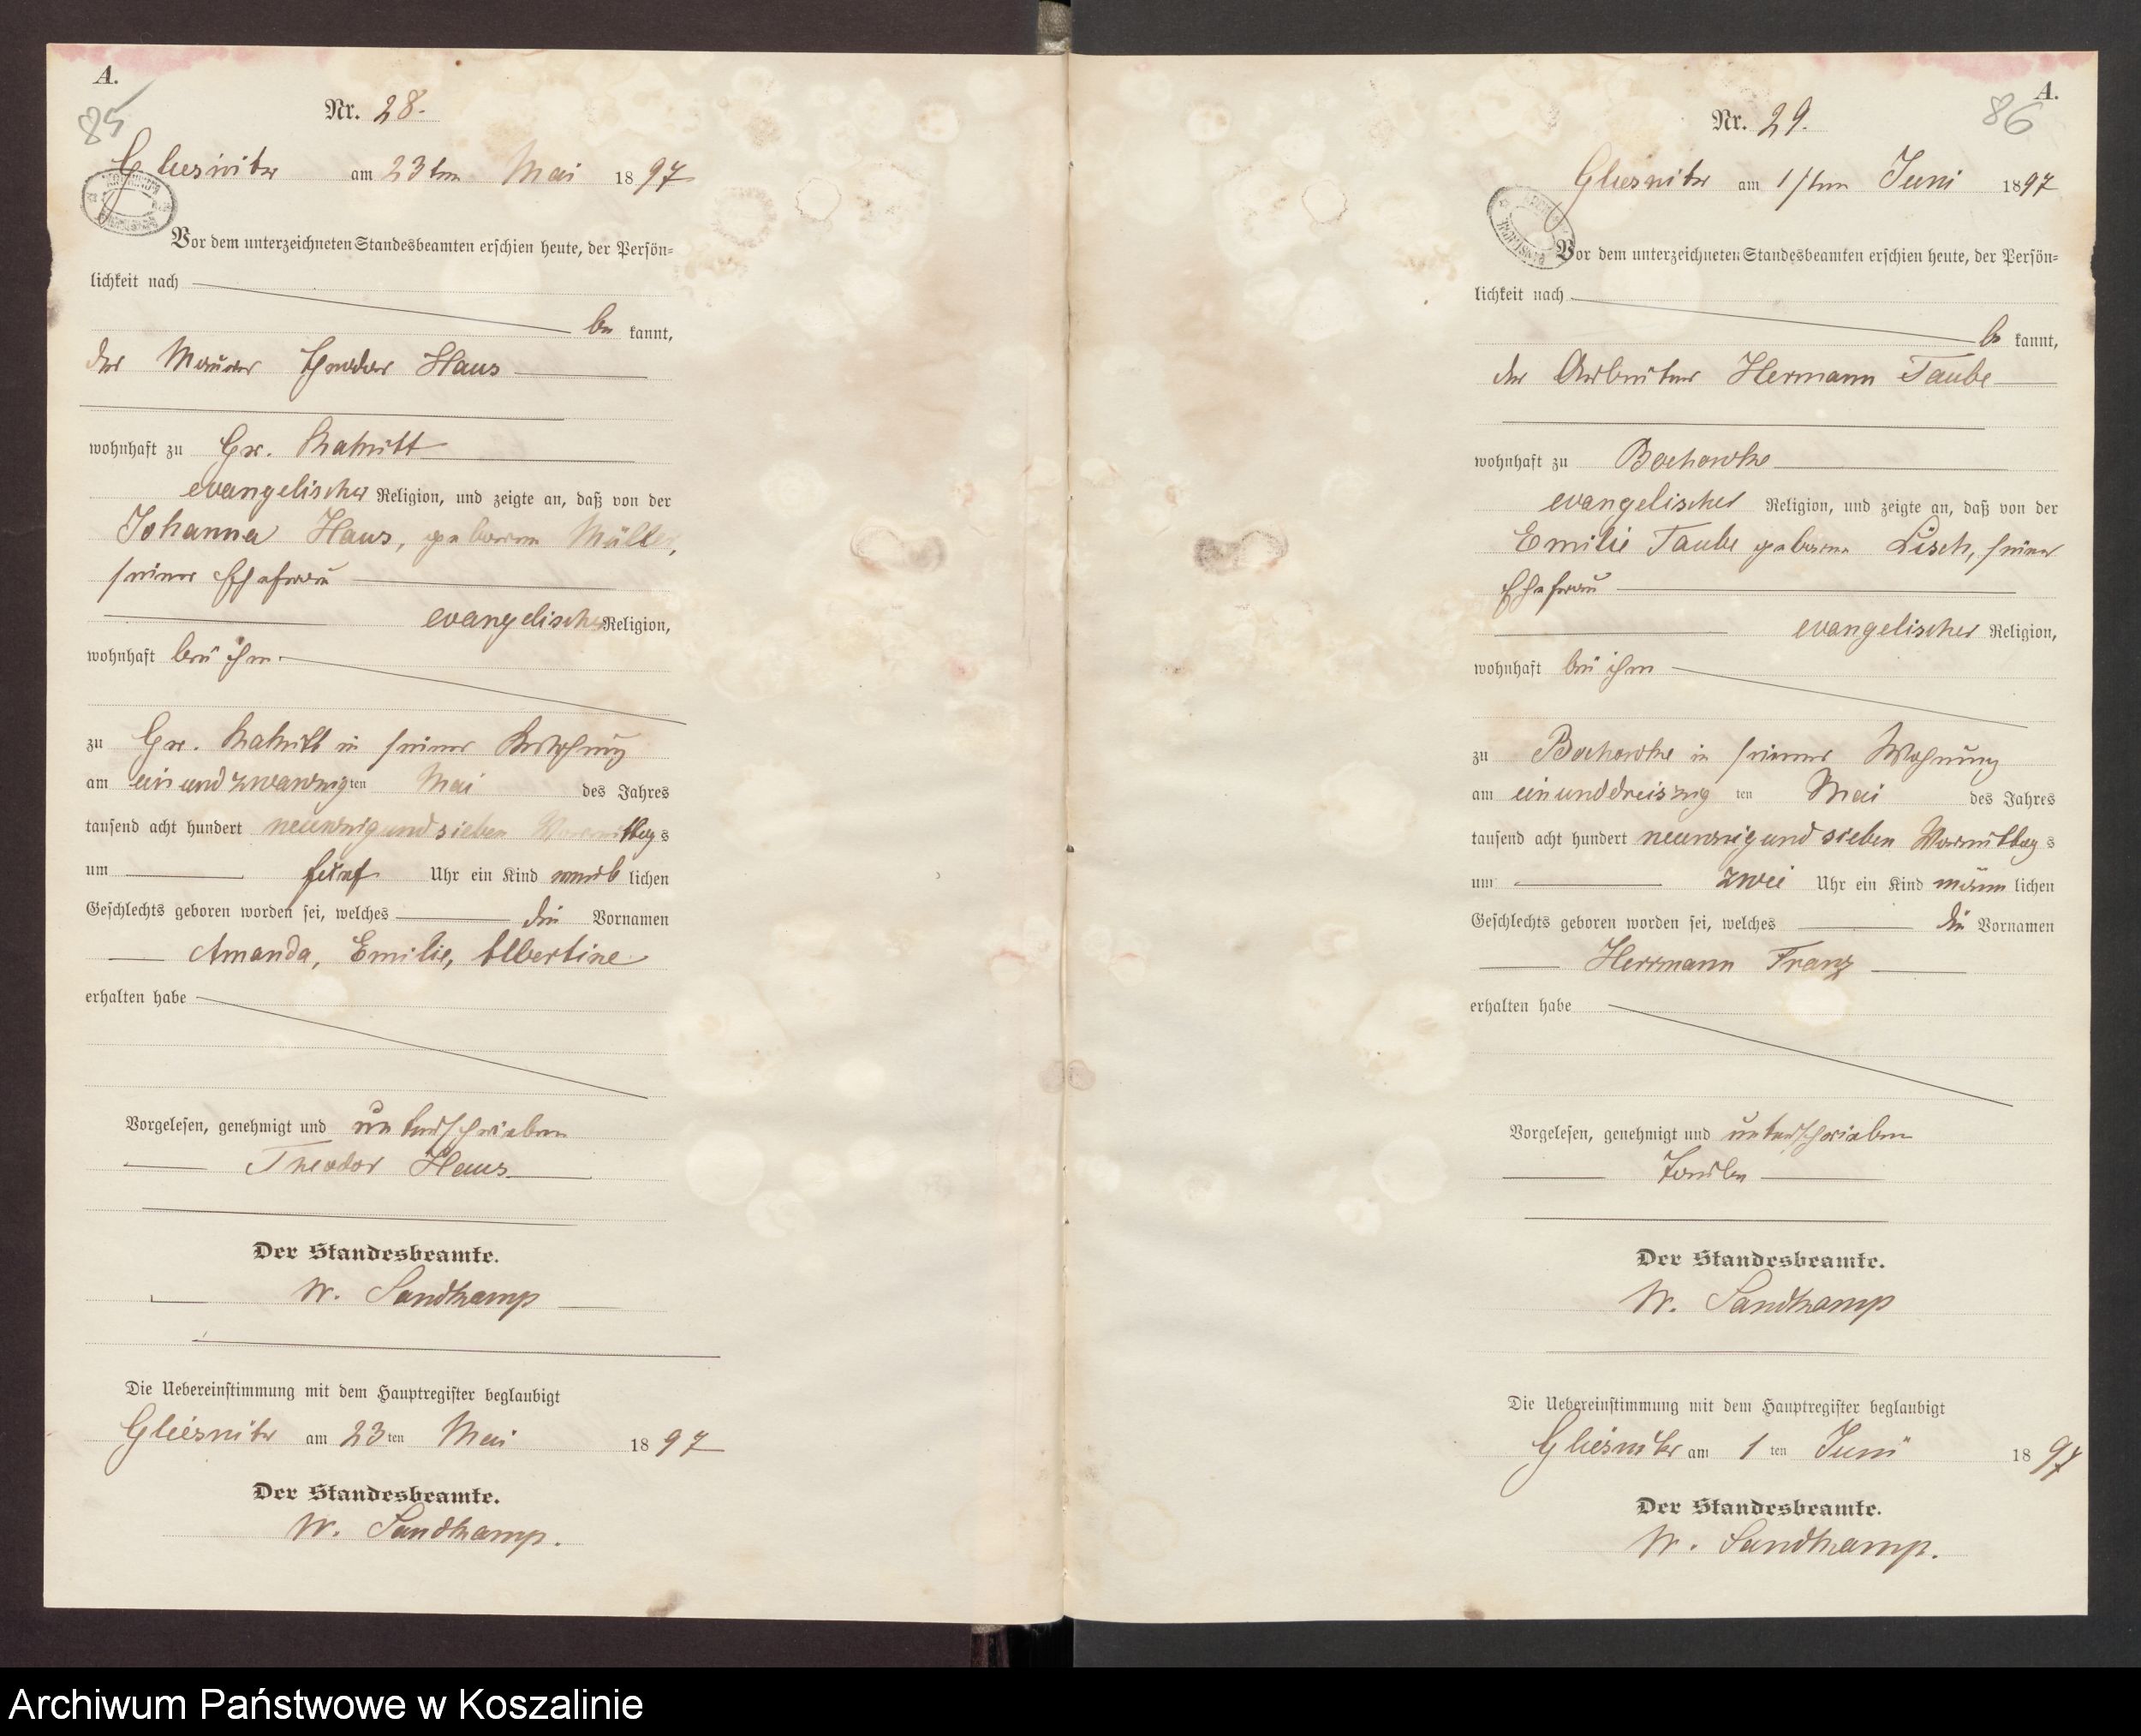 A.
85
Nr. 28.
Gliesnitz am 23ten Mai 1897
Vor dem unterzeichneten Standesbeamten erschien heute, der Persön-
lichkeit nach
be kannt,
der Maurer Theodor Haus
wohnhaft zu Gr.
evangelischer Religion, und zeigte an, daß von der
Johanna Haus, geborene Müller,
seiner Ehefrau
evangelischer Religion,
wohnhaft bei ihm
zu Gr. in seiner Wohnung
am ein und zwanzig ten Mai des Jahres
tausend acht hundert neunzig und sieben Vormittags
um fünf Uhr ein Kind weib lichen
Geschlechts geboren worden sei, welches die Vornamen
Amanda, Emilie, Albertine
erhalten habe
Vorgelesen, genehmigt und unterschrieben
Theodor Haus
Der Standesbeamte.
W. Sandkamp
Die Uebereinstimmung mit dem Hauptregister beglaubigt
Gliesnitz am 23ten Mai 1897
Der Standesbeamte.
W. Sandkamp.
A.
86
Nr. 29.
Gliesnitz am 1sten Juni 1897
Vor dem unterzeichneten Standesbeamten erschien heute, der Persön-
lichkeit nach
be kannt,
der Arbeiter Hermann Taube
wohnhaft zu Bochowke
evangelischer Religion, und zeigte an, daß von der
Emilie Taube geborene Lisch, seiner
Ehefrau
evangelischer Religion,
wohnhaft bei ihm
zu Bochowke in seiner Wohnung
am ein und dreiszig ten Mai des Jahres
tausend acht hundert neunzig und sieben Vormittags
um zwei Uhr ein Kind männ lichen
Geschlechts geboren worden sei, welches die Vornamen
Herrmann Franz
erhalten habe
Vorgelesen, genehmigt und unterschrieben
Der Standesbeamte.
W. Sandkamp
Die Uebereinstimmung mit dem Hauptregister beglaubigt
Gliesnitz am 1 ten Juni 1897
Der Standesbeamte.
W. Sandkamp.
Archiwum Państwowe w Koszalinie